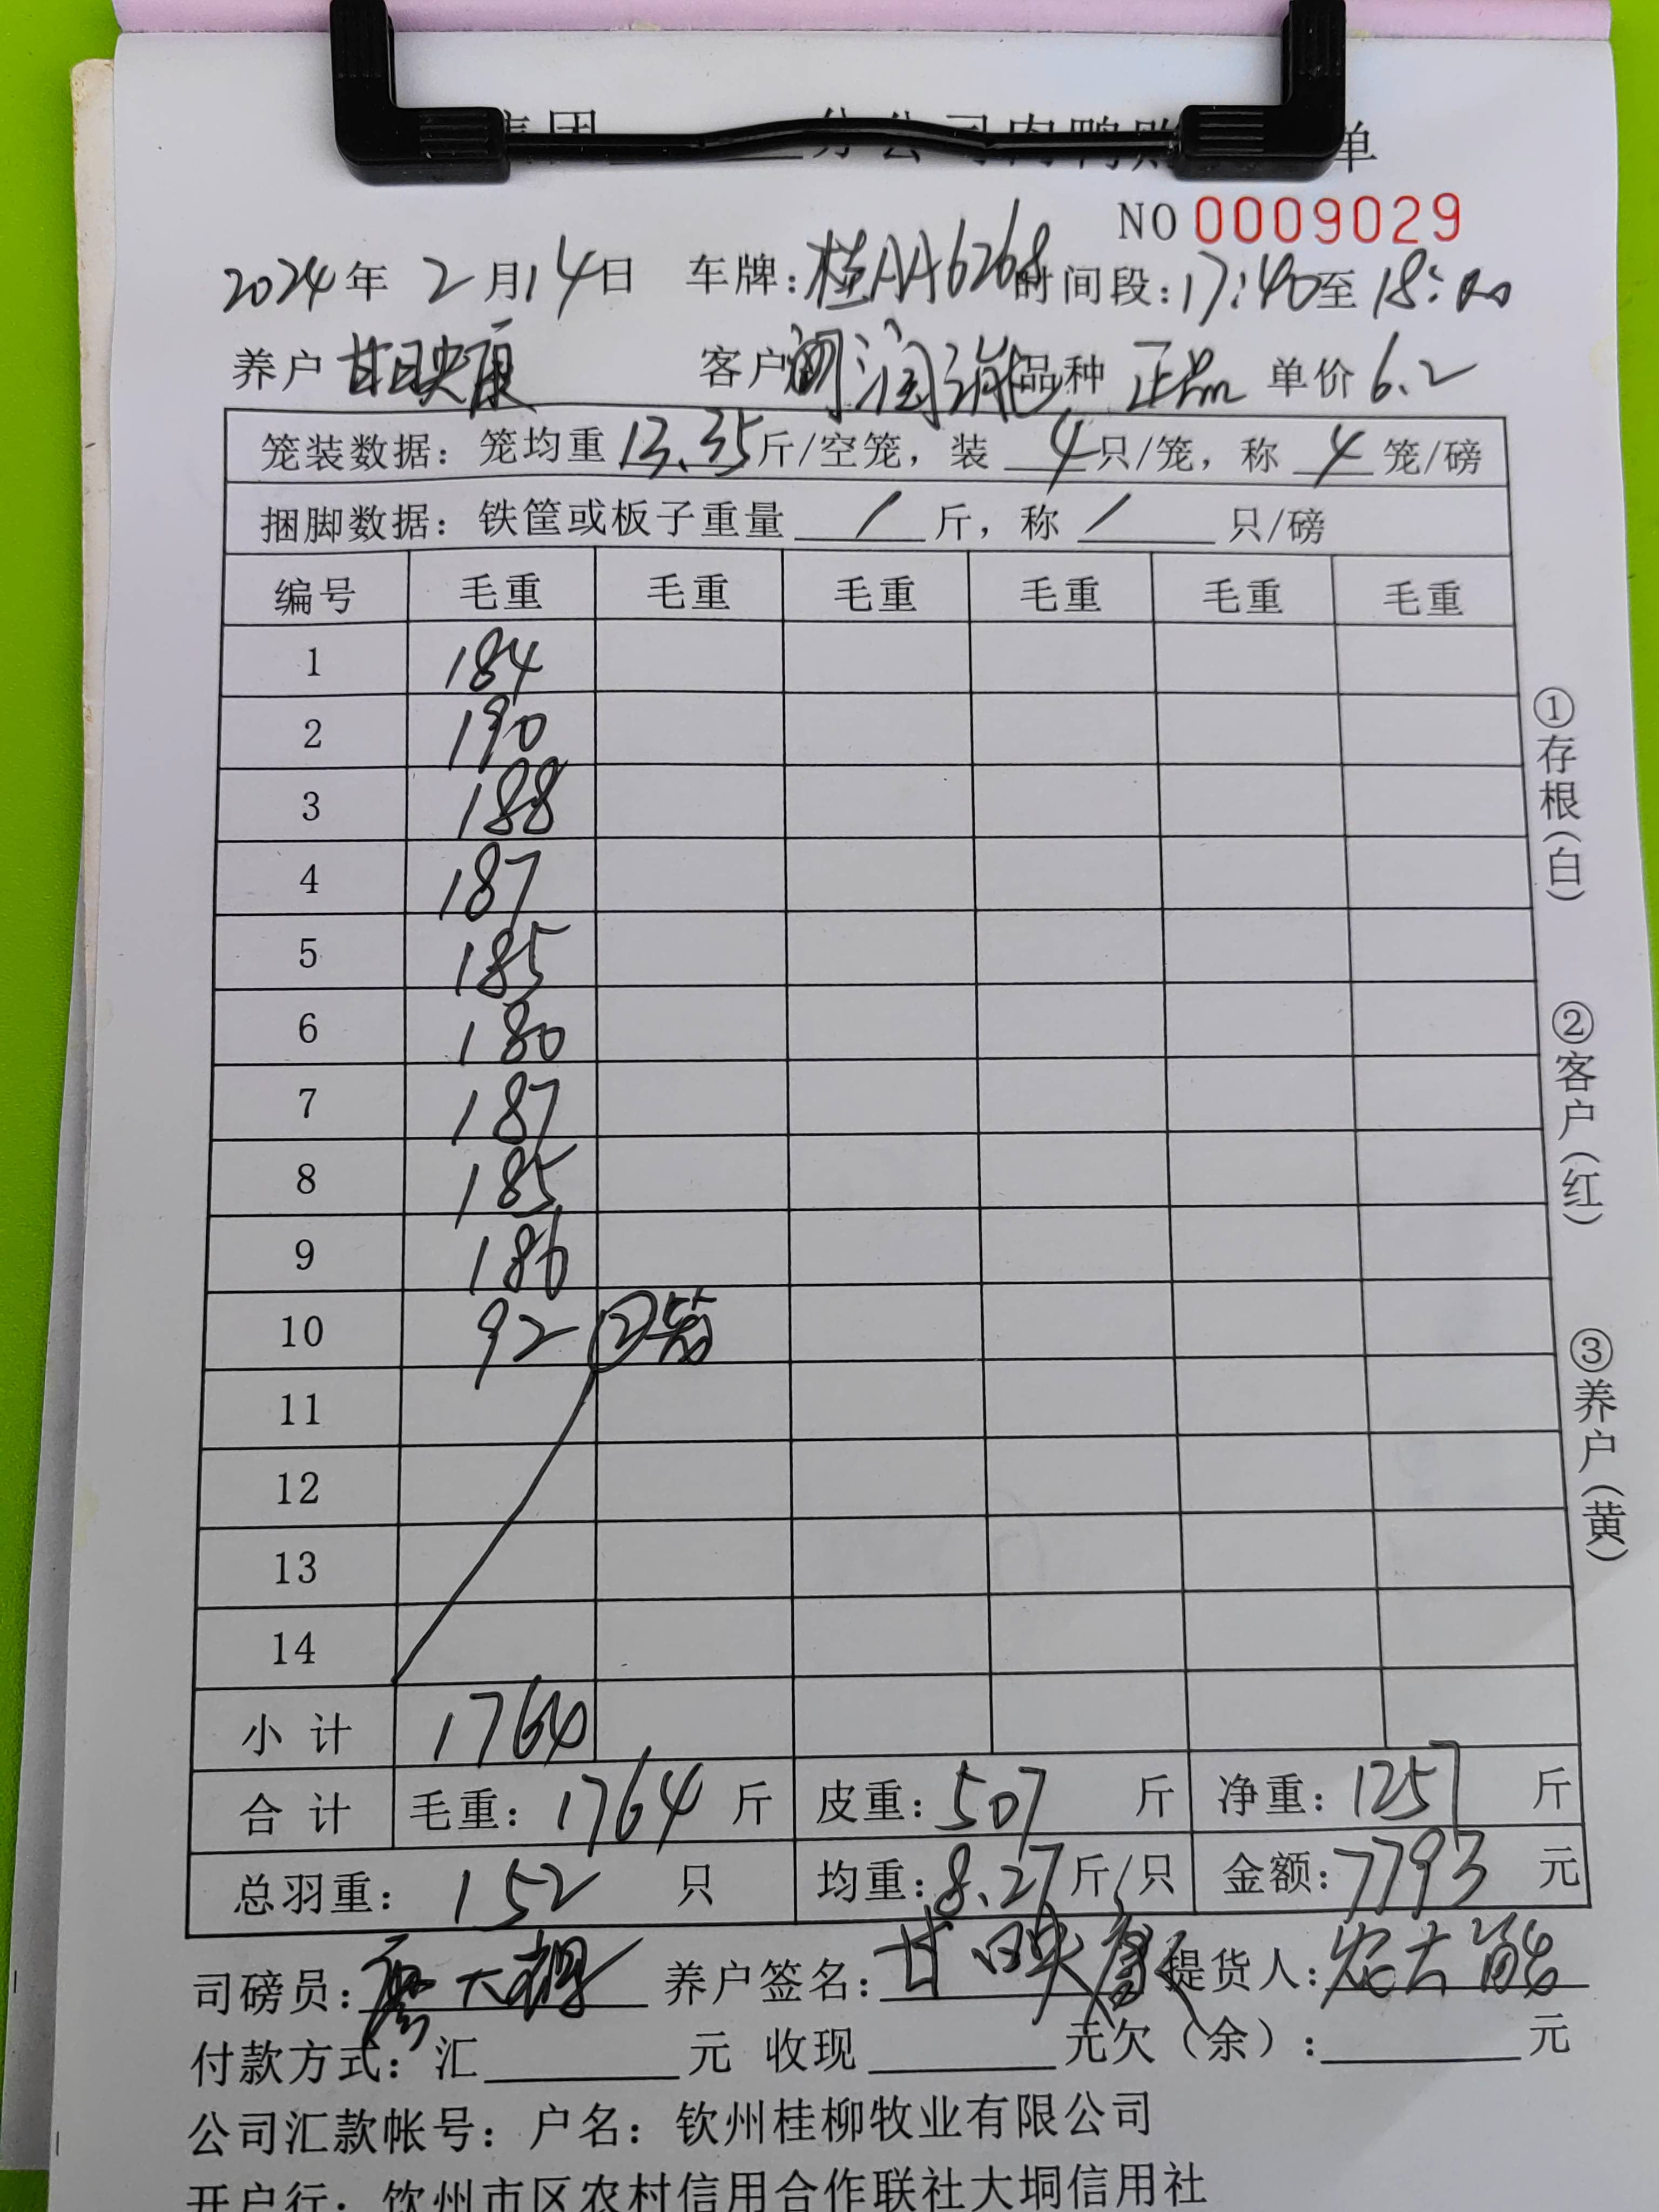 集团 分公司肉鸭购 单
NO 0009029
2024年 2月14日 车牌:桂AA6268 时间段:17:40至18:00
养户 甘映康 客户 润 品种 正品 单价 6.2
笼装数据: 笼均重 13.35斤/空笼, 装 4只/笼, 称 4 笼/磅
捆脚数据: 铁筐或板子重量 / 斤, 称 / 只/磅
编号 毛重 毛重 毛重 毛重 毛重 毛重
1 184
2 190
3 188
4 187
5 185
6 180
7 187
8 185
9 186
10 92 ②笼
11
12
13
14
小计 1764
合计 毛重: 1764 斤 皮重: 507 斤 净重: 1257 斤
总羽重: 152 只 均重: 8.27斤/只 金额: 7793 元
司磅员: 大 养户签名: 甘映康 提货人: 农大能
付款方式: 汇 元 收现 元欠(余): 元
公司汇款帐号: 户名: 钦州桂柳牧业有限公司
开户行: 钦州市区农村信用合作联社大垌信用社
①存根(白)
②客户(红)
③养户(黄)